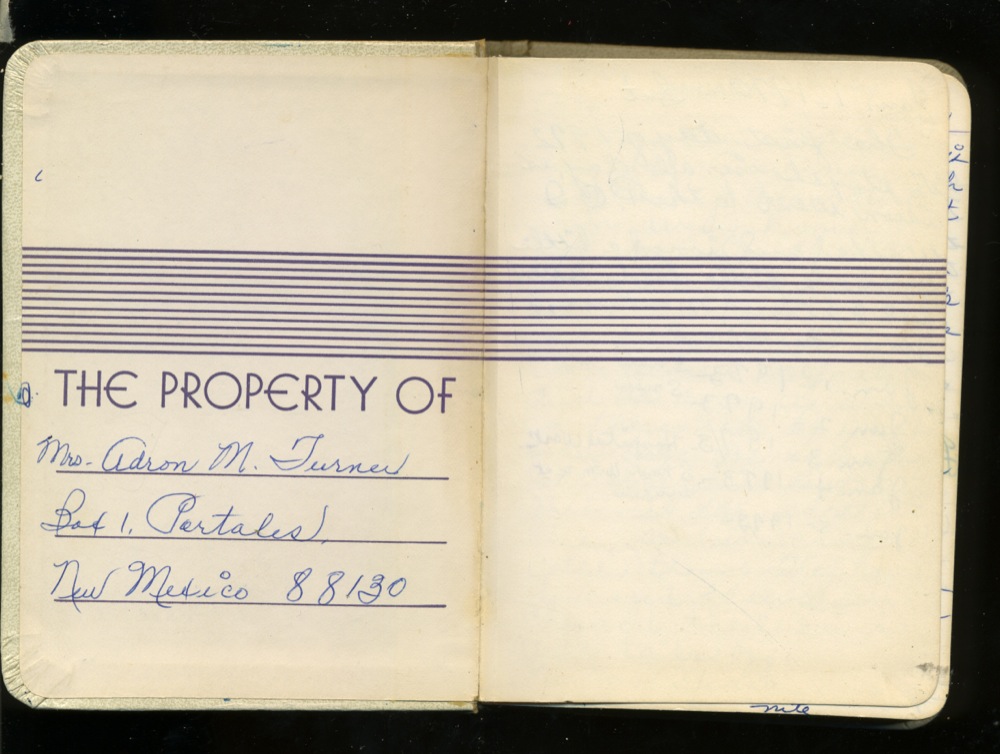 THE PROPERTY OF
Mrs. Adron M. Turner
Box 1, Portales,
New Mexico 88130